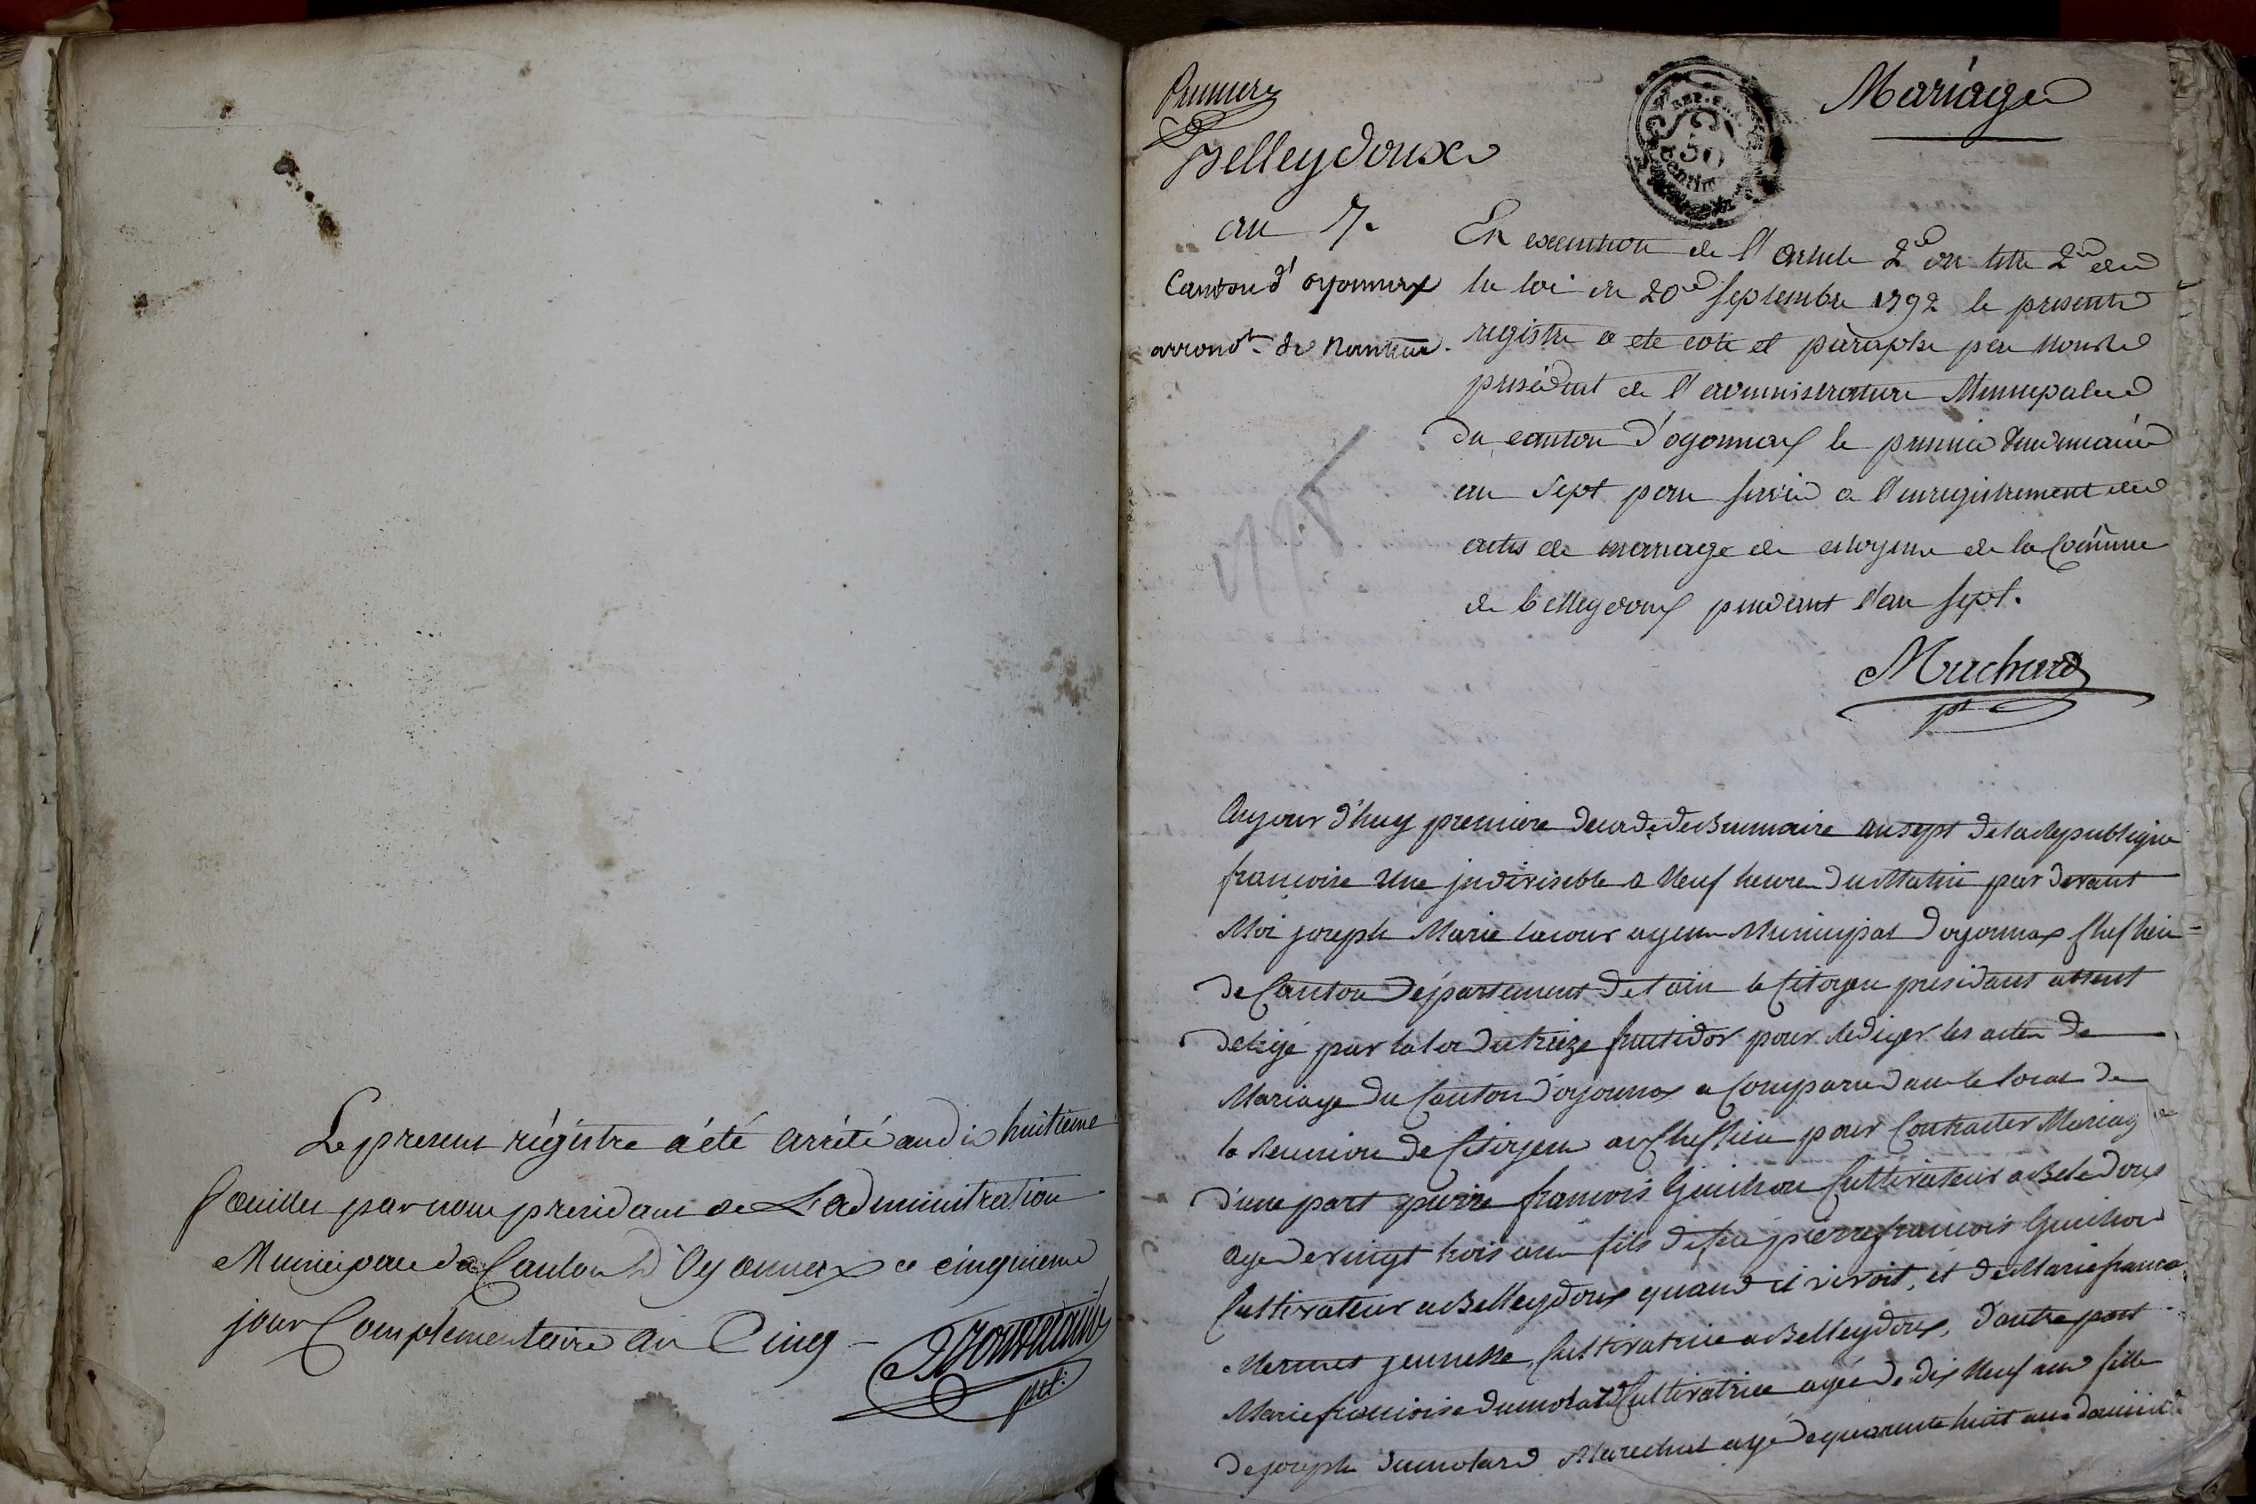 Le present régistre a été arrété au dix huitieme
foeuillet par nous president de L'administration
Municipale du Canton D'Oyonnax ce cinquieme
jour Complementaire an Cinq
pdt.
Premier
Belleydoux
an 7.
Canton d'oyonnax
arrond.t de Nantua.
Mariage
REP. FRA.
50
Centim.
En execution de l'article 2e du titre 2e de
la loi du 20e septembre 1792 le present
registre a eté coté et paraphé par nous
president de l'administration Municipale
du canton d'oyonnax le premier vendemiaire
an sept pour servir a l'enregistrement des
actes de mariage de citoyens de la Commune
de belleydoux pendant l'an sept.
Muchard
pt
Aujour d'huy premiere decade de Brumaire an sept de la Republique
francoise Une indivisible a Neuf heure du Matin par devant
Moi joseph Marie lacour agent Municipal d'oyonnax chef lieu
de Canton Département de l'ain le Citoyen president absent
par la loi du treize fructidor pour Rediger les actes de
Mariage du Canton d'oyonnax a Comparu dans le local de
la Reunion de Citoyens au Chef lieu pour Contracter Mariage
d'une part pierre francois Guichon Cultivateur a Beledoux
age de vingt trois ans fils de feu pierre francois Guichon
Cultivateur a Belleydoux quand il vivoit, et de Marie franca
Mermet jeunesse, Cultivatrice a Belleydoux, d'autre part
Marie francoise dumolard Cultivatrice agée de dix Neuf ans fille
de joseph dumolard Marechal agé de quarante huit ans